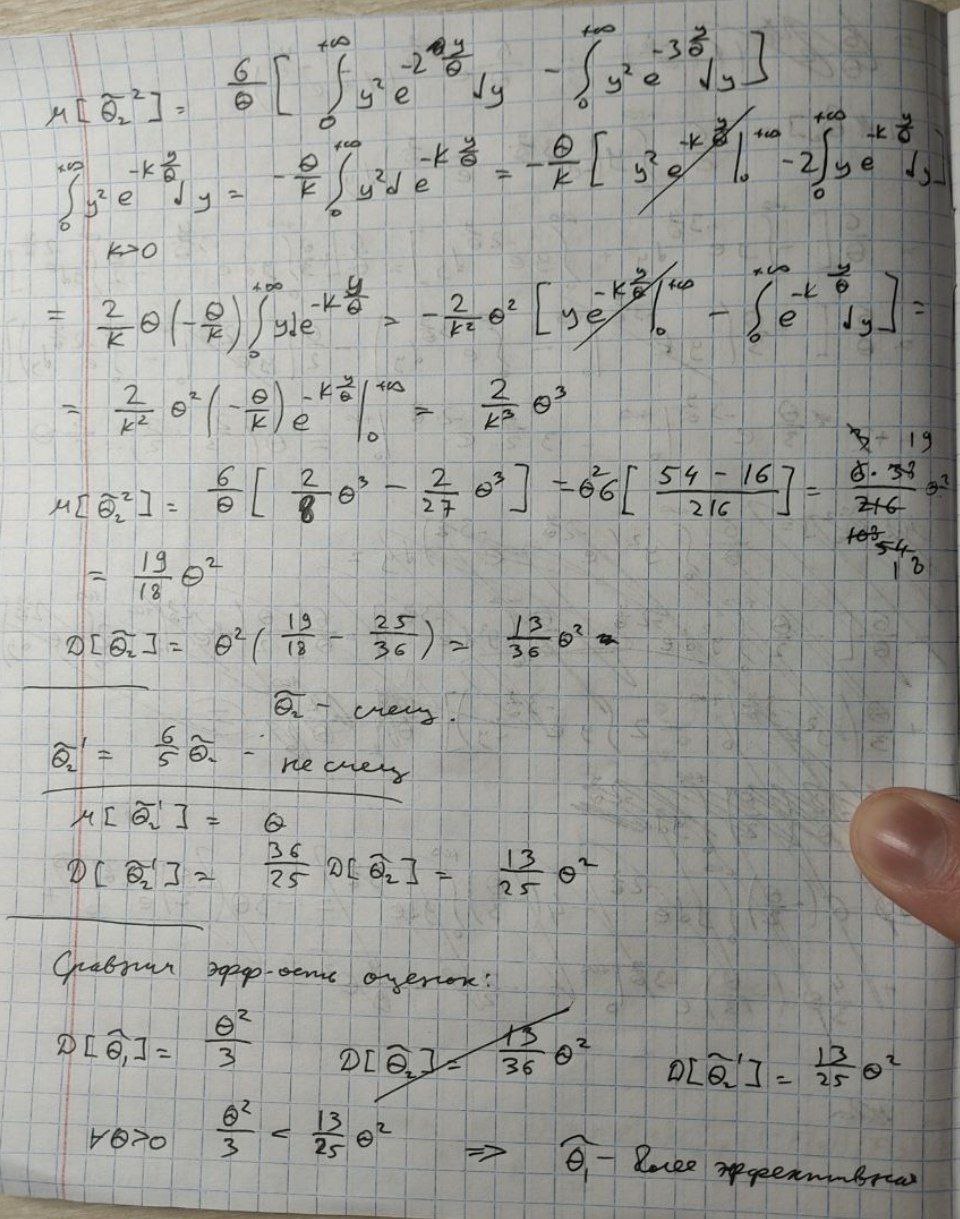 M[θ̃₂²] = 6/θ [ ∫₀^{+∞} y² e^{-2 y/θ} dy - ∫₀^{+∞} y² e^{-3 y/θ} dy ]
∫₀^{+∞} y² e^{-k y/θ} dy = -θ/k ∫₀^{+∞} y² d e^{-k y/θ} = -θ/k [ y² e^{-k y/θ} |₀^{+∞} - 2∫₀^{+∞} y e^{-k y/θ} dy ]
k>0
= 2/k θ (-θ/k) ∫₀^{+∞} y d e^{-k y/θ} = -2/k² θ² [ y e^{-k y/θ} |₀^{+∞} - ∫₀^{+∞} e^{-k y/θ} dy ] =
= 2/k² θ² (-θ/k) e^{-k y/θ} |₀^{+∞} = 2/k³ θ³
M[θ̃₂²] = 6/θ [ 2/8 θ³ - 2/27 θ³ ] = θ² 6 [ (54 - 16)/216 ] = (6 · 38)/216 θ²
3 19
108 54
18
= 19/18 θ²
D[θ̃₂] = θ² ( 19/18 - 25/36 ) = 13/36 θ²
θ̃₂ - смещ.
θ̃₂' = 6/5 θ̃₂ - несмещ
M[θ̃₂'] = θ
D[θ̃₂'] = 36/25 D[θ̃₂] = 13/25 θ²
Сравним эфф-ость оценок:
D[θ̃₁] = θ²/3 D[θ̃₂] = 13/36 θ² D[θ̃₂'] = 13/25 θ²
∀θ>0 θ²/3 < 13/25 θ² ⇒ θ̃₁ - более эффективная